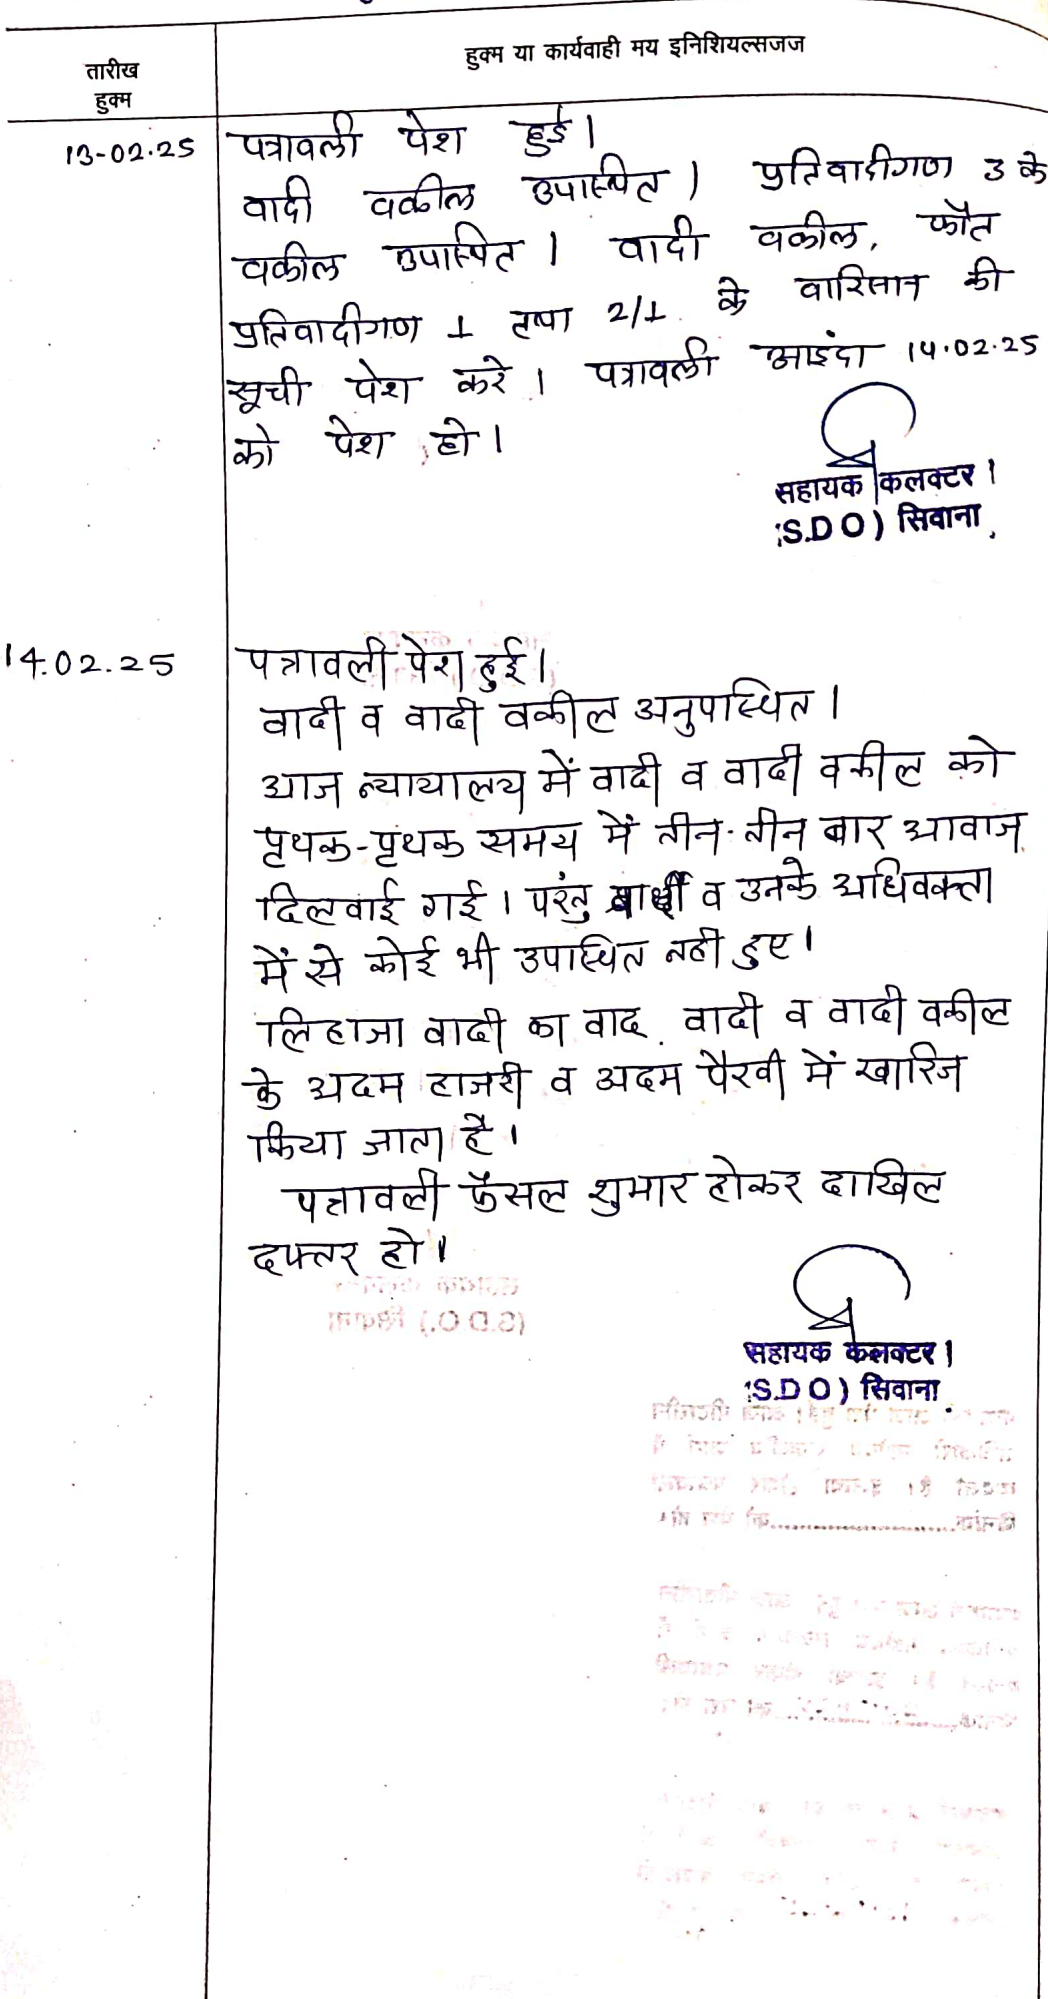 तारीख
हुक्म
हुक्म या कार्यवाही मय इनिशियल्सजज
13-02.25
पत्रावली पेश हुई।
वादी वकील उपास्थित। प्रतिवादीगण 3 के
वकील उपास्थित। वादी वकील, फौत
प्रतिवादीगण 1 तथा 2/1 के वारिसान की
सूची पेश करे। पत्रावली आइंदा 14.02.25
को पेश हो।
सहायक कलक्टर।
(S.D O) सिवाना
14.02.25
पत्रावली पेश हुई।
वादी व वादी वकील अनुपस्थित।
आज न्यायालय में वादी व वादी वकील को
पृथक-पृथक समय में तीन-तीन बार आवाज
दिलवाई गई। परंतु व उनके अधिवक्ता
में से कोई भी उपास्थित नही हुए।
लिहाजा वादी का वाद वादी व वादी वकील
के अदम हाजरी व अदम पैरवी में खारिज
किया जाता है।
पत्रावली फैसल शुमार होकर दाखिल
दफ्तर हो।
सहायक कलक्टर।
(S.D O) सिवाना
(S.D.O.) सिवाना